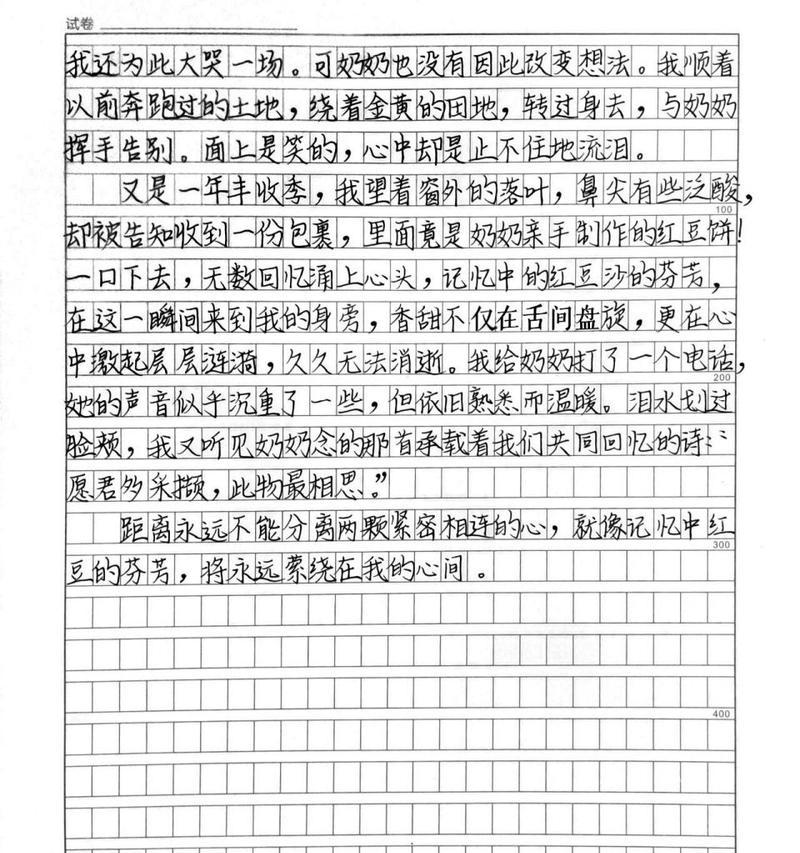 试卷
我还为此大哭一场。可奶奶也没有因此改变想法。我顺着
以前奔跑过的土地，绕着金黄的田地，转过身去，与奶奶
挥手告别。面上是笑的，心中却是止不住地流泪。
又是一年丰收季，我望着窗外的落叶，鼻尖有些泛酸，
100
却被告知收到一份包裹，里面竟是奶奶亲手制作的红豆饼！
一口下去，无数回忆涌上心头，记忆中的红豆沙的芬芳，
在这一瞬间来到我的身旁，香甜不仅在舌间盘旋，更在心
中激起层层涟漪，久久无法消逝。我给奶奶打了一个电话，
200
她的声音似乎沉重了一些，但依旧熟悉而温暖。泪水划过
脸颊，我又听见奶奶念的那首承载着我们共同回忆的诗：“
愿君多采撷，此物最相思。”
距离永远不能分离两颗紧密相连的心，就像记忆中红
300
豆的芬芳，将永远萦绕在我的心间。
400